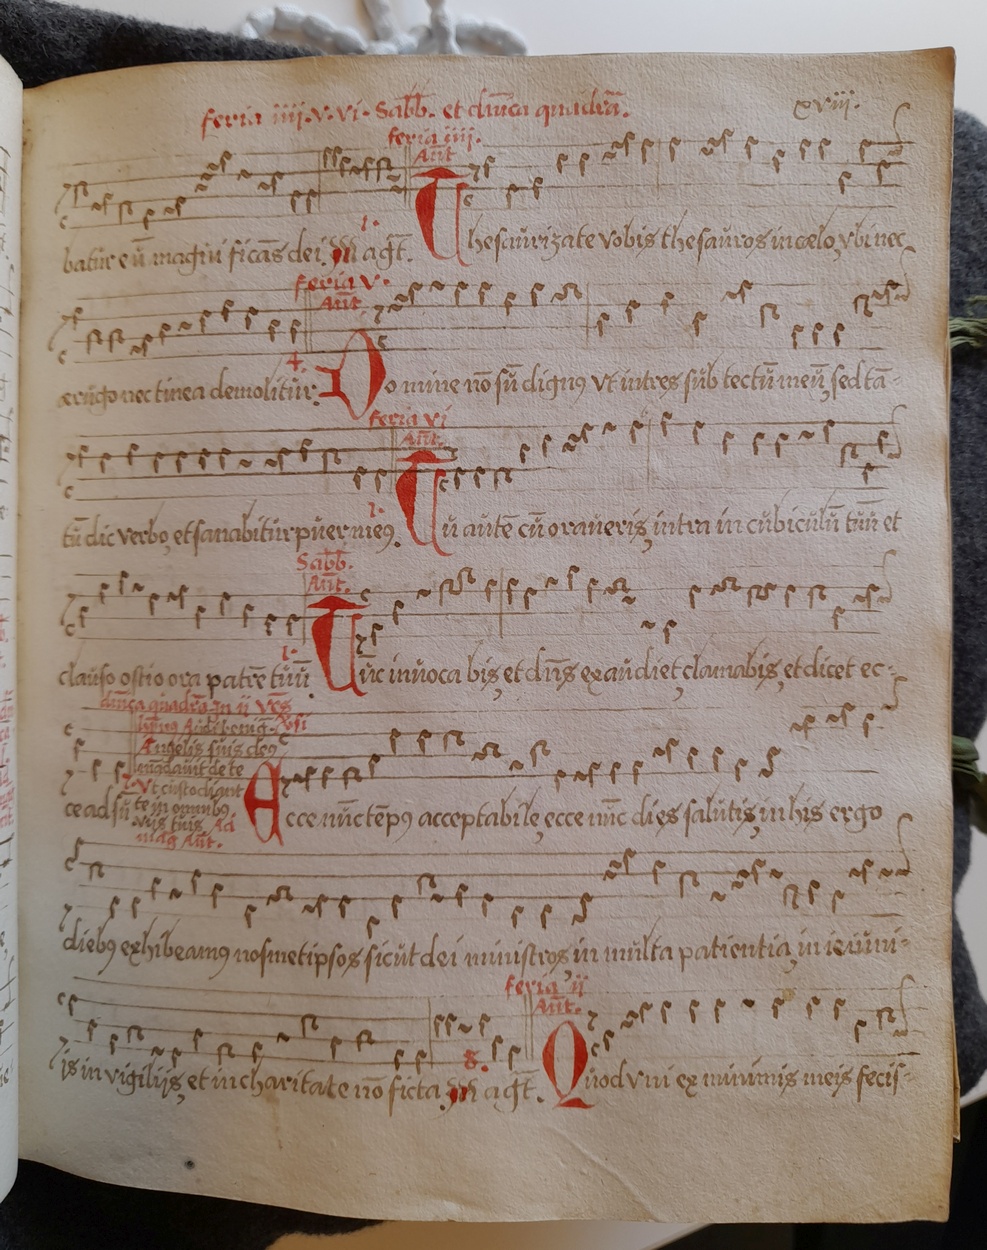 feria iiii. v. vi. Sabb. et dnica quadra.
xviii.
feria iiii.
Ant
batur eu magni ficas dei. Magt. 1. Thesaurizate vobis thesauros in cælo, vbi nec
feria v.
Ant
ærugo nec tinea demolitur. 4. Domine no su dignus vt intres sub tectu meu, sed ta-
feria vi
Ant.
tu dic verbo, et sanabitur puer meus. 1. Tu aute cu oraueris, intra in cubiculu tuu et
Sabb.
Ant.
clauso ostio ora patre tuu. 1. Tuc inuoca bis, et dns exaudiet, clamabis, et dicet ec-
dnica quadra. In ii ves
Angelis suis deus
mandauit de te
vt custodiant
te in omnibus
vijs tuis. Ad
mag Ant.
ce ad su Ecce nuc temp9 acceptabile, ecce nuc dies salutis, in his ergo
diebus exhibeamus nosmetipsos sicut dei ministros, in multa patientia, in ieiuni-
feria ii
Ant.
is in vigilijs, et in charitate no ficta. Magt. 8. Quod vni ex minimis meis fecis-